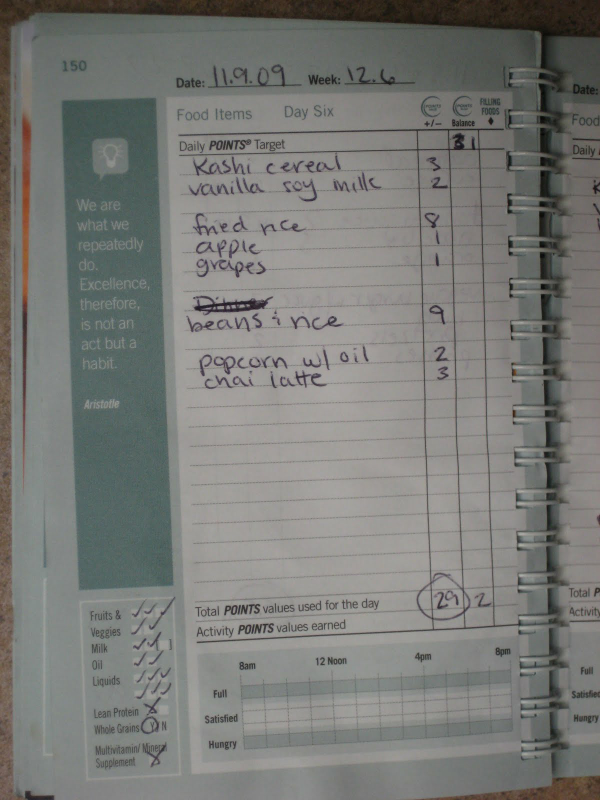 150
Date: 11.9.09 Week: 12.6
Date:
Food Items Day Six +/– Balance FILLING FOODS
Food
Daily POINTS® Target 31
Daily
Kashi cereal 3
vanilla soy milk 2
fried rice 8
apple 1
grapes 1
Dinner
beans & rice 9
popcorn w/ oil 2
chai latte 3
We are
what we
repeatedly
do.
Excellence,
therefore,
is not an
act but a
habit.
Aristotle
Total POINTS values used for the day 29 2
Activity POINTS values earned
Total P
Activity
8am 12 Noon 4pm 8pm
Full
Satisfied
Hungry
Full
Satisfied
Hungry
Fruits &
Veggies
Milk
Oil
Liquids
Lean Protein
Whole Grains Y N
Multivitamin/Mineral
Supplement